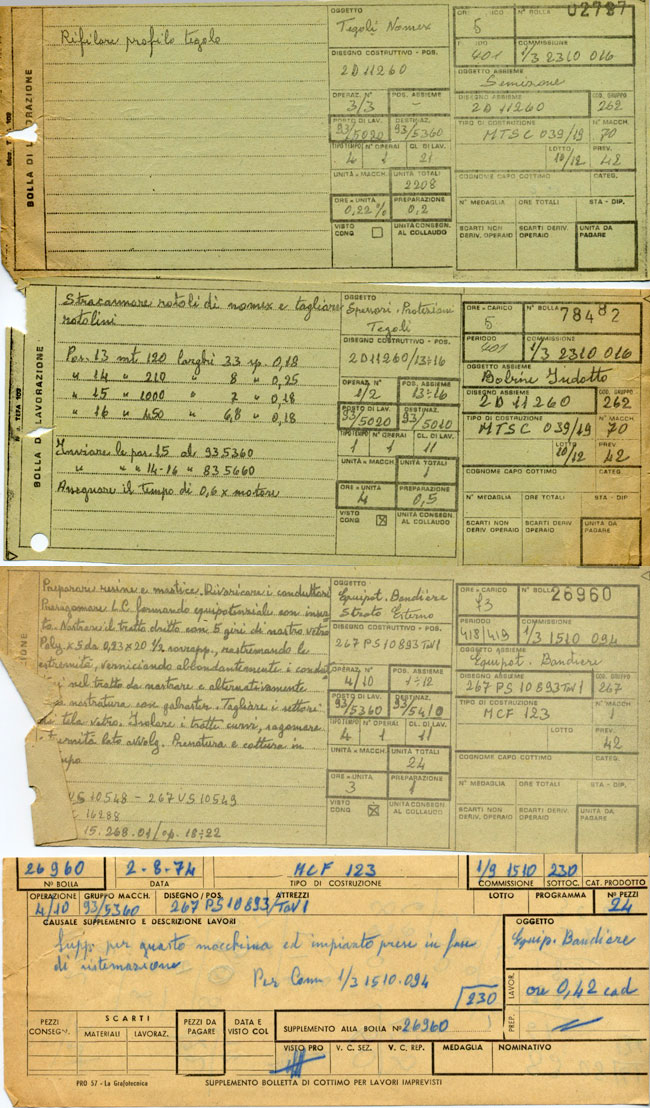 Rifilare profilo tegolo
BOLLA DI LAVORAZIONE
OGGETTO
Tegoli Nomex
DISEGNO COSTRUTTIVO - POS.
2D11260
OPERAZ. N° POS. ASSIEME
3/3 -
POSTO DI LAV. DESTINAZ.
93/5020 93/5360
TIPO TEMPO N° OPERAI CL. DI LAV.
4 1 21
UNITÀ = MACCH. UNITÀ TOTALI
2208
ORE = UNITÀ PREPARAZIONE
0,22% 0,2
VISTO CONG UNITÀ CONSEGN. AL COLLAUDO
N° BOLLA
5 02787
COMMISSIONE
401 1/3 2310 016
OGGETTO ASSIEME
Semizone
DISEGNO ASSIEME COD. GRUPPO
2D 11260 262
TIPO DI COSTRUZIONE N° MACCH.
MTSC 039/19 70
LOTTO PREV.
10/12 42
COGNOME CAPO COTTIMO CATEG.
N° MEDAGLIA ORE TOTALI STA - DIP.
SCARTI NON DERIV. OPERAIO SCARTI DERIV. OPERAIO UNITÀ DA PAGARE
Stracannare rotoli di nomex e tagliare
rotolini
Pos. 13 mt. 120 larghi 33 sp. 0,18
" 14 " 210 " 8 " 0,25
" 15 " 1000 " 7 " 0,18
" 16 " 450 " 6,8 " 0,18
Inviare le pos. 15 al 935360
" " " 14-16 " 835660
Assegnare il tempo di 0,6 x motore
BOLLA DI LAVORAZIONE
OGGETTO
Spessori. Protezioni
Tegoli
DISEGNO COSTRUTTIVO - POS.
2D11260/13÷16
OPERAZ. N° POS. ASSIEME
1/2 13÷16
POSTO DI LAV. DESTINAZ.
93/5020 93/5010
TIPO TEMPO N° OPERAI CL. DI LAV.
1 1 11
UNITÀ = MACCH. UNITÀ TOTALI
1
ORE = UNITÀ PREPARAZIONE
4 0,5
VISTO CONG UNITÀ CONSEGN. AL COLLAUDO
ORE = CARICO N° BOLLA
5 78482
PERIODO COMMISSIONE
401 1/3 2310 016
OGGETTO ASSIEME
Bobine Indotto
DISEGNO ASSIEME COD. GRUPPO
2D 11260 262
TIPO DI COSTRUZIONE N° MACCH.
MTSC 039/19 70
LOTTO PREV.
10/12 42
COGNOME CAPO COTTIMO CATEG.
N° MEDAGLIA ORE TOTALI STA - DIP.
SCARTI NON DERIV. OPERAIO SCARTI DERIV. OPERAIO UNITÀ DA PAGARE
Preparare resine e mastice. Divaricare i conduttori
L.C. formando equipotenziale con
Nastrare il tratto dritto con 5 giri di nastro vetro
Poly. x 5 da 0,23 x 20 1/2 sovrapp., rastremando le
estremità, verniciando abbondantemente i
nel tratto da nastrare e alternativamente
nastratura con galbaster. Tagliare i settori
tela vetro. Isolare i tratti curvi, sagomare
lato avvolg. Pressatura e cottura in
VS 10548 - 267 VS 10549
16288
15.268.01/op. 18÷22
OGGETTO
Equipot. Bandiere
Strato Esterno
DISEGNO COSTRUTTIVO - POS.
267 PS 10893/TaV1
OPERAZ. N° POS. ASSIEME
4/10 1÷12
POSTO DI LAV. DESTINAZ.
93/5360 93/5410
TIPO TEMPO N° OPERAI CL. DI LAV.
4 1 11
UNITÀ = MACCH. UNITÀ TOTALI
24
ORE = UNITÀ PREPARAZIONE
3 1
VISTO CONG UNITÀ CONSEGN. AL COLLAUDO
ORE = CARICO N° BOLLA
73 26960
PERIODO COMMISSIONE
418/419 1/3 1510 094
OGGETTO ASSIEME
Equipot. Bandiere
DISEGNO ASSIEME COD. GRUPPO
267 PS 10893 TaV1 267
TIPO DI COSTRUZIONE N° MACCH.
MCF 123 1
LOTTO PREV.
42
COGNOME CAPO COTTIMO CATEG.
N° MEDAGLIA ORE TOTALI STA - DIP.
SCARTI NON DERIV. OPERAIO SCARTI DERIV. OPERAIO UNITÀ DA PAGARE
26960 2-8-74 MCF 123 1/9 1510 230
N° BOLLA DATA TIPO DI COSTRUZIONE COMMISSIONE SOTTOC. CAT. PRODOTTO
OPERAZIONE GRUPPO MACCH. DISEGNO / POS. ATTREZZI LOTTO PROGRAMMA N° PEZZI
4/10 93/5360 267 PS 10893/TaV1 24
CAUSALE SUPPLEMENTO E DESCRIZIONE LAVORI OGGETTO
Supp. per guasto macchina ed impianto prese in fase
di sistemazione
Per Com 1/3 1510.094
230
Equip. Bandiere
LAVOR.
ore 0,42 cad
PREP.
PEZZI CONSEGN. SCARTI MATERIALI LAVORAZ. PEZZI DA PAGARE DATA E VISTO COL
SUPPLEMENTO ALLA BOLLA N° 26960
VISTO PRO V. C. SEZ. V. C. REP. MEDAGLIA NOMINATIVO
PRO 57 - La Grafotecnica SUPPLEMENTO BOLLETTA DI COTTIMO PER LAVORI IMPREVISTI